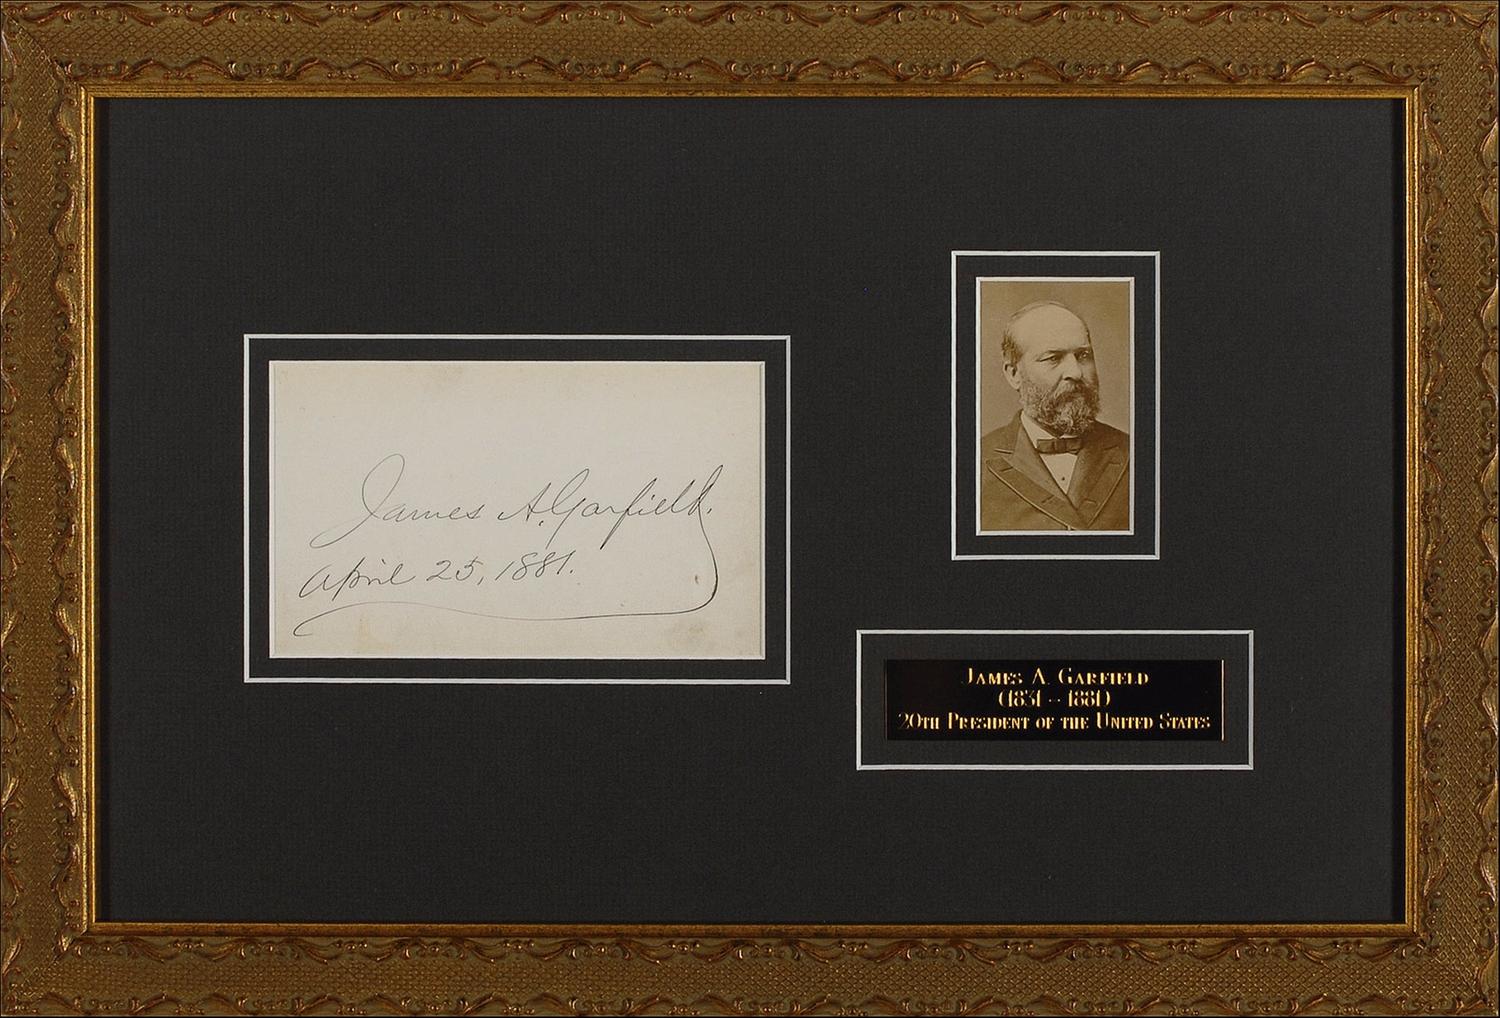 James A. Garfield.
April 25, 1881.
JAMES A. GARFIELD
(1831 - 1881)
20TH PRESIDENT OF THE UNITED STATES